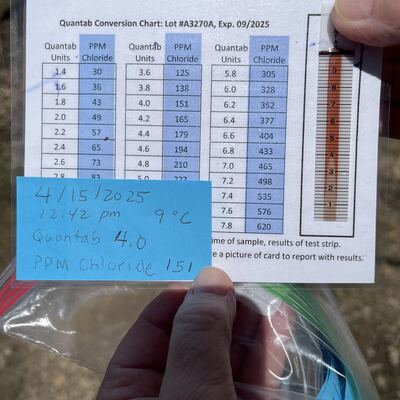 Quantab Conversion Chart: Lot #A3270A, Exp. 09/2025
Quantab Units PPM Chloride Quantab Units PPM Chloride Quantab Units PPM Chloride
1.4 30 3.6 125 5.8 305
1.6 36 3.8 138 6.0 328
1.8 43 4.0 151 6.2 352
2.0 49 4.2 165 6.4 377
2.2 57 4.4 179 6.6 404
2.4 65 4.6 194 6.8 433
2.6 73 4.8 210 7.0 465
2.8 83 5.0 227 7.2 498
7.4 535
7.6 576
7.8 620
4/15/2025
12:42 pm 9°C
Quantab 4.0
PPM Chloride 151
me of sample, results of test strip.
e a picture of card to report with results.
9
8
7
6
5
4
3
2
1